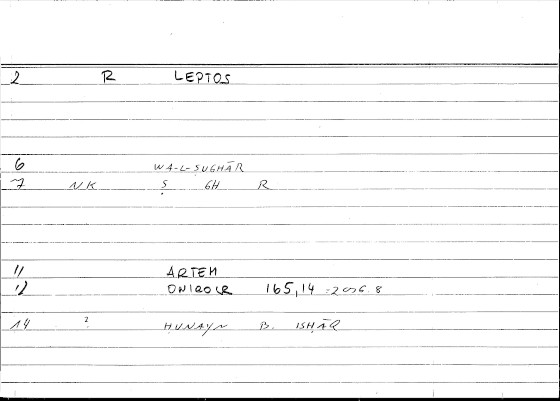 2 R LEPTOS
6 WA-L-ṢUGHĀR
7 NK Ṣ GH R
11 ARTEM
12 ONIROCR 165,14 = 206.8
14 ? ḤUNAYN B. ISḤĀQ